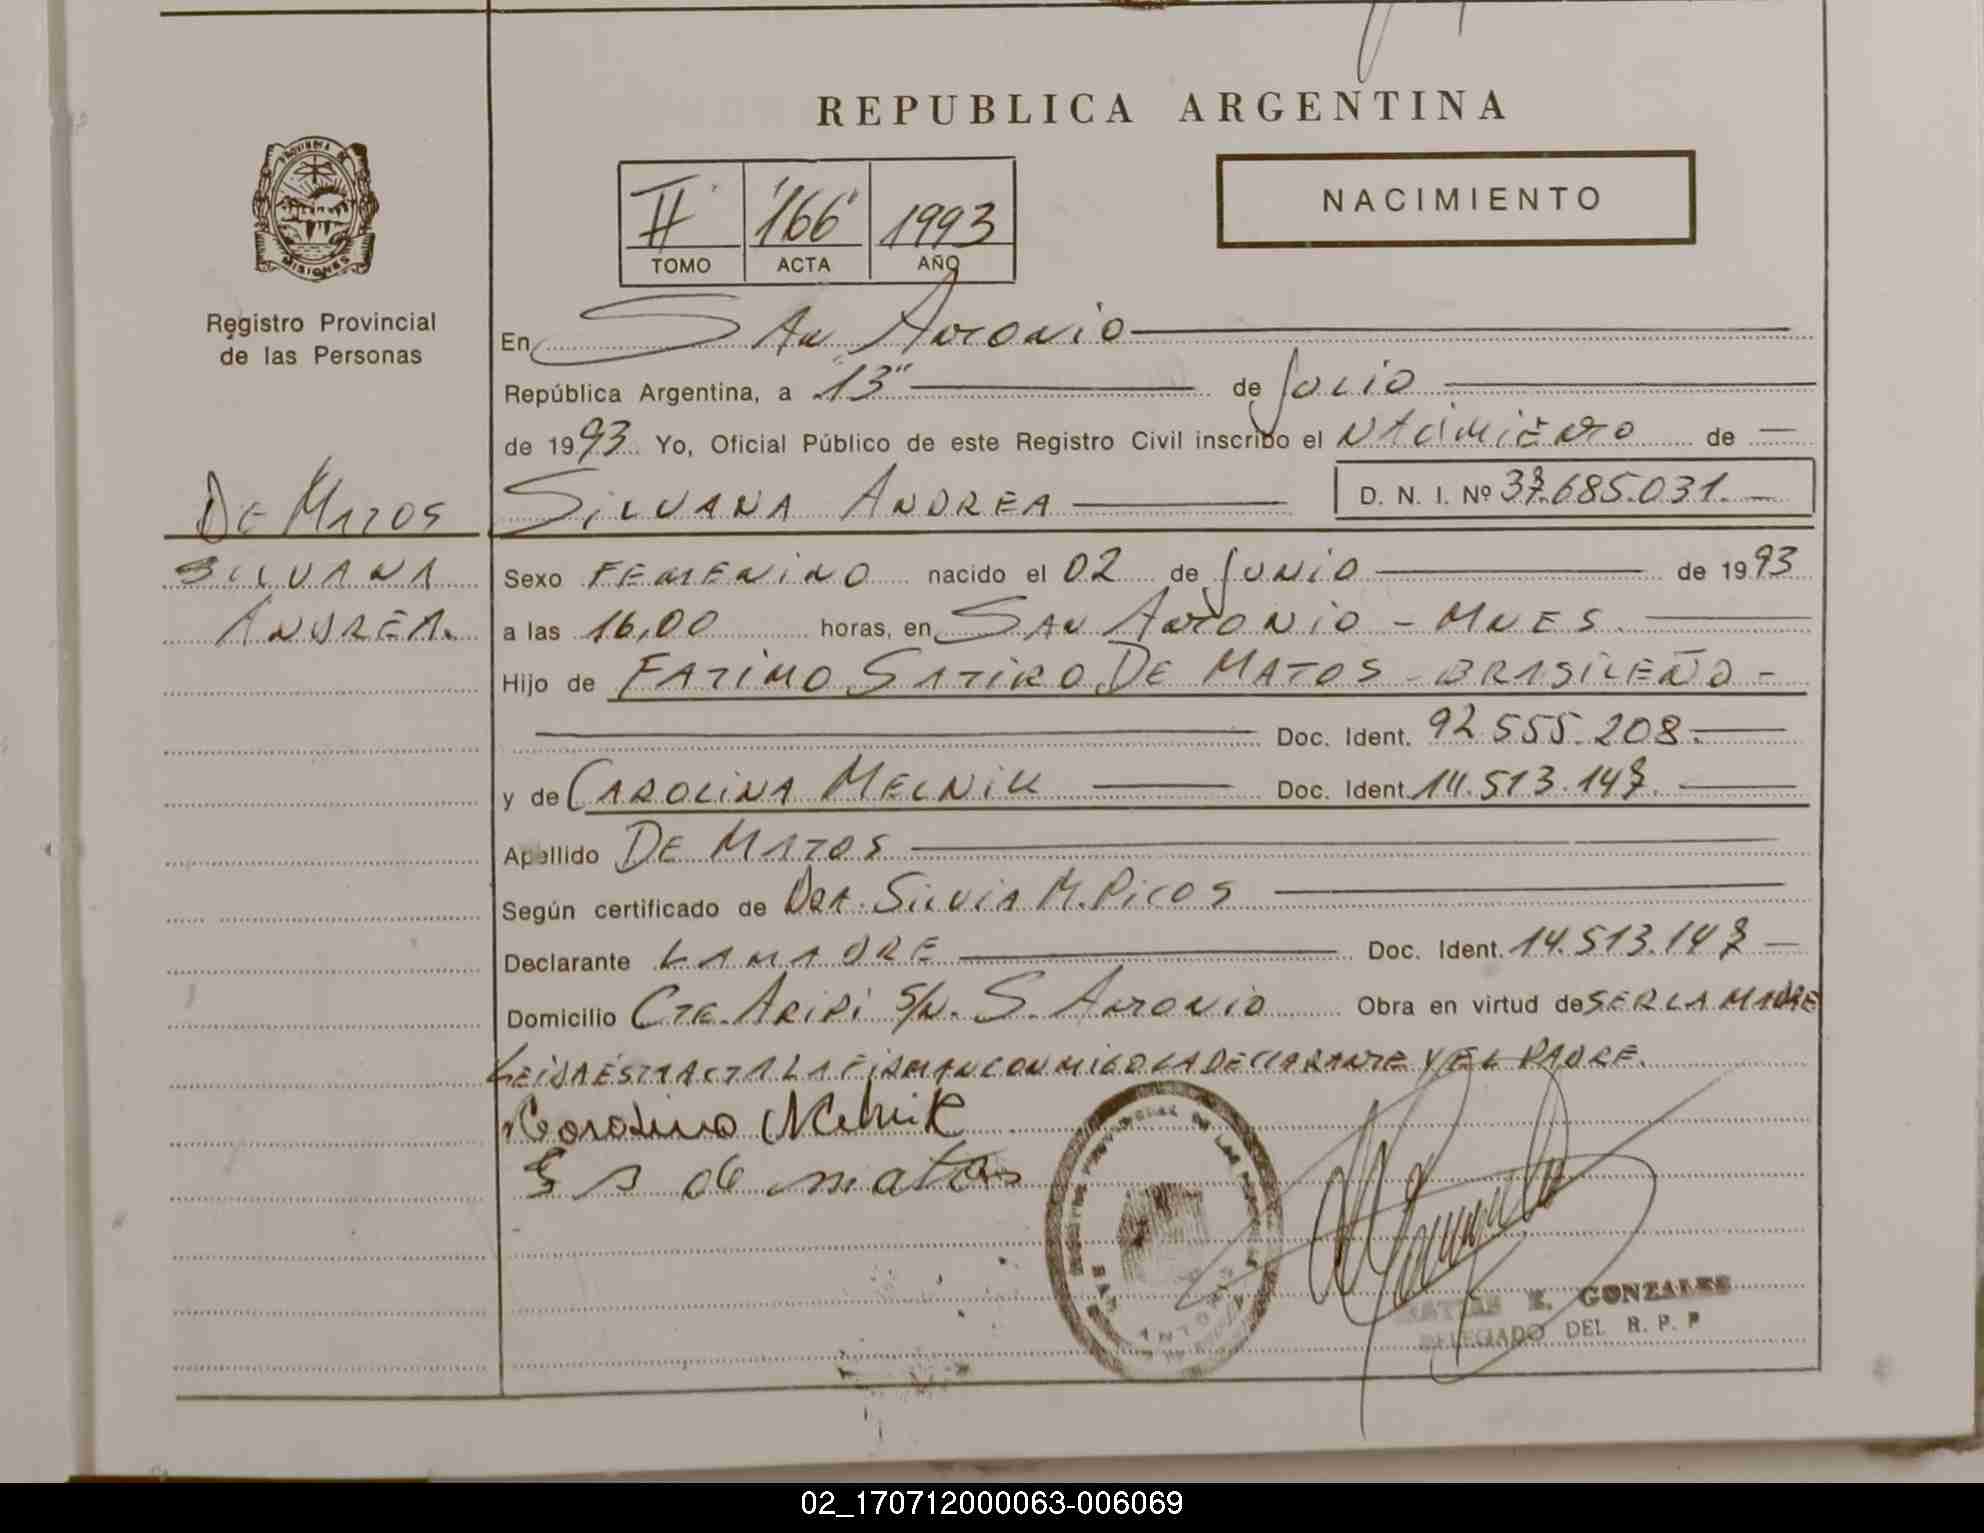 REPUBLICA ARGENTINA
PROVINCIA DE
MISIONES
Registro Provincial
de las Personas
II 166 1993
TOMO ACTA AÑO
NACIMIENTO
En San Antonio
República Argentina, a 13 de Julio
de 1993 Yo, Oficial Público de este Registro Civil inscribo el Nacimiento de
De Matos
Silvana Andrea D. N. I. Nº 37.685.031.
Silvana
Andrea.
Sexo FEMENINO nacido el 02 de Junio de 1993
a las 16,00 horas, en San Antonio - Mnes.
Hijo de Fatimo Satiro De Matos - Brasileño -
Doc. Ident. 92.555.208.
y de Carolina Melnik Doc. Ident. 14.513.147.
Apellido De Matos
Según certificado de Dra. Silvia M. Picos
Declarante La Madre Doc. Ident. 14.513.147
Domicilio Cte. Aripi S/N. S. Antonio Obra en virtud de ser la madre
Leida esta acta la firman conmigo la declarante y el padre.
Carolina Melnik
de matos
SAN ANTONIO
E. GONZALES
DELEGADO DEL R. P. P
02_170712000063-006069